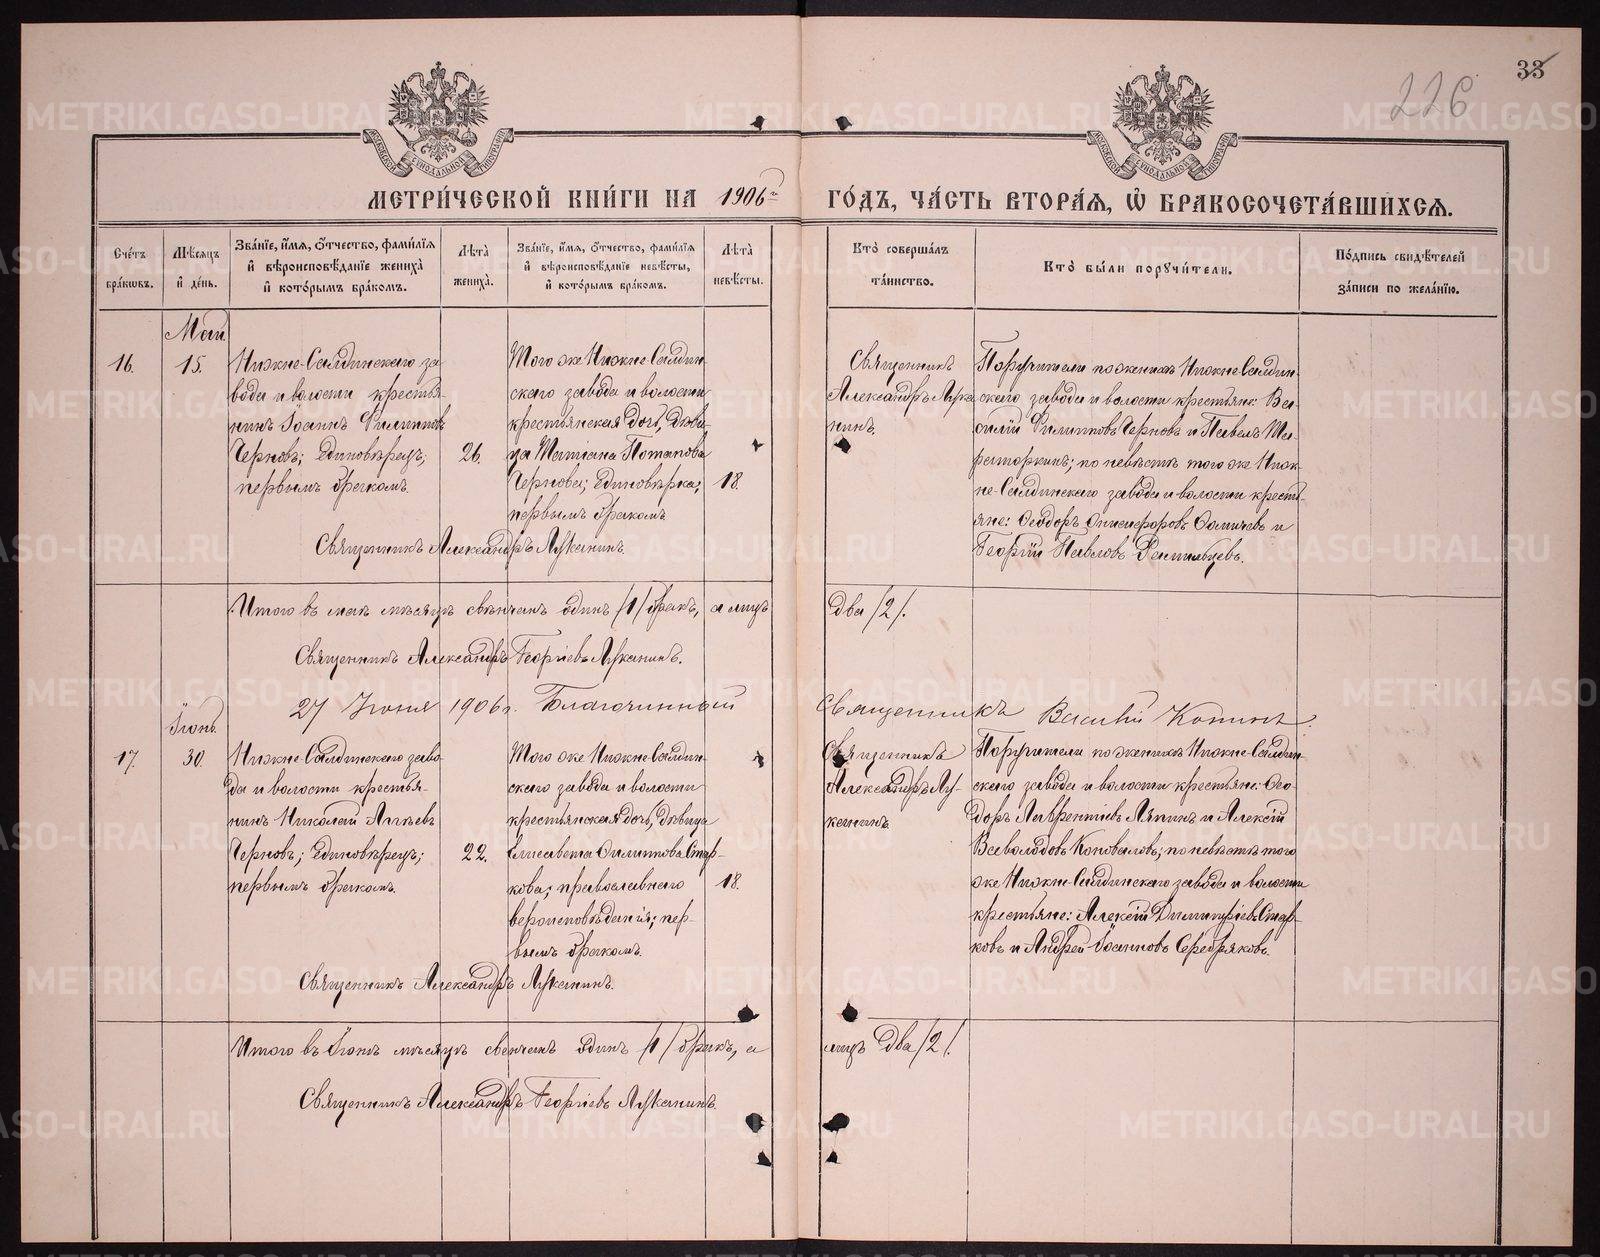 33
226
МОСКОВСКОЙ СѴНОДАЛЬНОЙ ТИПОГРАФІИ
МОСКОВСКОЙ СѴНОДАЛЬНОЙ ТИПОГРАФІИ
МЕТРИ́ЧЕСКОЙ КНИ́ГИ НА 1906й ГО́ДЪ, ЧА́СТЬ ВТОРА́Я, Ѽ БРАКОСОЧЕТА́ВШИХСЯ.
Счетъ
браковъ.
Мѣсяцъ
и день.
Званіе, имя, отчество, фамилія
и вѣроисповѣданіе жениха
и которымъ бракомъ.
Лѣта
жениха.
Званіе, имя, отчество, фамилія
и вѣроисповѣданіе невѣсты,
и которымъ бракомъ.
Лѣта
невѣсты.
Кто совершалъ
таинство.
Кто были поручители.
Подпись свидѣтелей
записи по желанію.
Май
16.
15.
Нижне-Салдинскаго за
вода и волости крестья
нинъ Іоаннъ Филипповъ
Черновъ; единовѣрецъ;
первымъ бракомъ.
26.
Того же Нижне-Салдин
скаго завода и волости
крестьянская дочь, дѣви
ца Татіана Потапова
Чернова; единовѣрка;
первымъ бракомъ
18.
Священникъ
Александръ Лука
нинъ.
Поручители по женихѣ Нижне-Салдин-
скаго завода и волости крестьяне: Ва-
силій Филипповъ Черновъ и Павелъ
по невѣстѣ того же Ниж-
не-Салдинскаго завода и волости кресть-
яне: Ѳеодоръ Онисифоровъ и
Георгій Павловъ
Священникъ Александръ Луканинъ.
Итого въ маѣ мѣсяцѣ свѣнчанъ одинъ /1/ бракъ, а лицъ два /2/.
Священникъ Александръ Георгіевъ Луканинъ.
27 Іюня 1906 г. Благочинный Священникъ Василій
Іюнь
17.
30
Нижне-Салдинскаго заво
да и волости крестья-
нинъ Николай
Черновъ; единовѣрецъ;
первымъ бракомъ.
22.
Того же Нижне-Салдин
скаго завода и волости
крестьянская дочь, дѣвица
Елисавета Филиппова Стар-
кова; православнаго
вероисповѣданія; пер-
вымъ бракомъ.
18.
Священникъ
Александръ Лу-
канинъ.
Поручители по женихѣ Нижне-Салдин-
скаго завода и волости крестьяне: Ѳео-
доръ Лаврентіевъ Ляпинъ и Алексій
Всеволодовъ Коноваловъ; по невѣстѣ того
же Нижне-Салдинскаго завода и волости
крестьяне: Алексій Димитріевъ Стар-
ковъ и Андрей Іоанновъ Серебряковъ.
Священникъ Александръ Луканинъ.
Итого въ Іюнѣ мѣсяцѣ свенчанъ одинъ /1/ бракъ, а лицъ два /2/.
Священникъ Александръ Георгіевъ Луканинъ.
METRIKI.GASO-URAL.RU